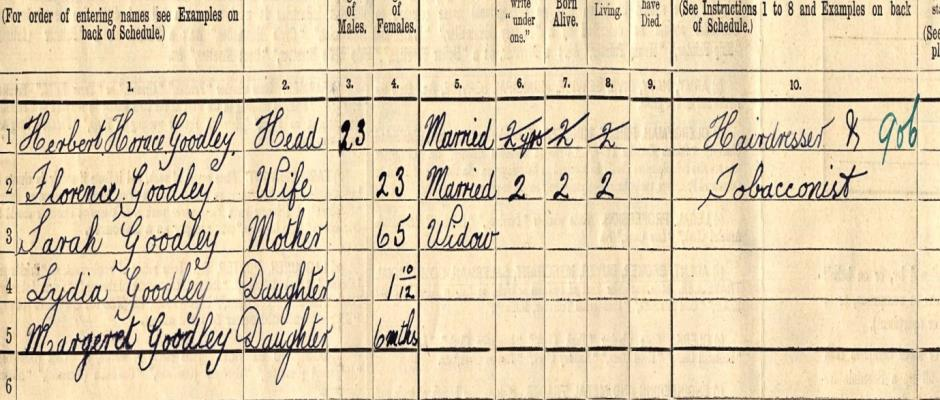 (For order of entering names see Examples on back of Schedule.) of Males. of Females. write "under one." Born Alive. Living. have Died. (See Instructions 1 to 8 and Examples on back of Schedule.) (See
1. 2. 3. 4. 5. 6. 7. 8. 9. 10.
1 Herbert Horace Goodley. Head 23 Married 2 yrs 2 2 Hairdresser & 906
2 Florence Goodley. Wife 23 Married 2 2 2 Tobacconist
3 Sarah Goodley Mother 65 Widow
4 Lydia Goodley Daughter 1 10/12
5 Margeret Goodley Daughter 6 mths
6